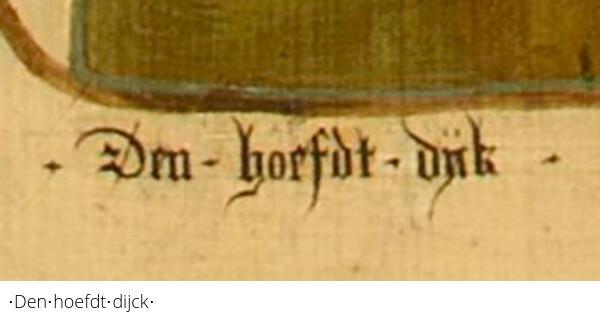 · Den · hoefdt · dijk ·
·Den·hoefdt·dijck·